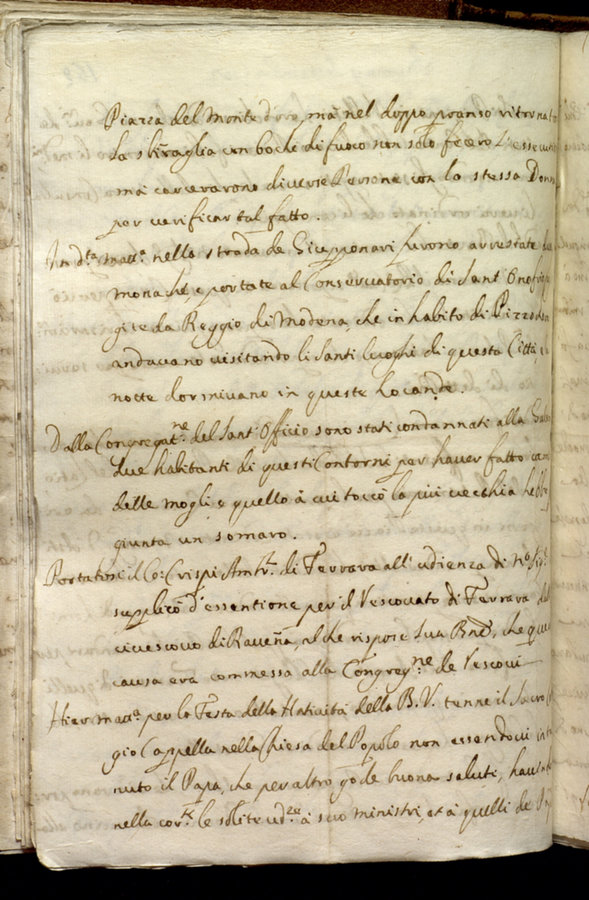 Piazza del Monte d'oro, mà nel doppo pranso ritornat
la sbiraglia con boche di fuoco non solo fecero l'essecut
mà carcerarono diverse Persone con la stessa Donn
per verificar tal fatto.
In d.ta matt.a nella strada de Giupponari furono arrestate due
monache, e portate al Conservatorio di Sant'Onofrio
gite da Reggio di Modena, che in habito di Pizzoch
andavano visitando li Santi luoghi di questa Città, e
nocte dormivano in queste locande.
Dalla Congregat.ne del Sant'Officio sono stati condannati alla Gal
due habitanti di questi Contorni per haver fatto cam
delle mogli e quello à cui toccò la più vecchia hebbe
giunta un somaro.
Portatosi il C. Crispi Amb.r di Ferrara all'udienza di N.o Sig.re
supplicò d'essentione per il Vescovato di Ferrara dal
civescovo di Ravenna, al che rispose Sua Bnd.e, che
causa era commessa alla Congreg.ne de Vescovi
Hier matt.a per la Festa della Natività della B. V. tenne il Sacro
gio Cappella nella Chiesa del Popolo non essendovi inter
nuto il Papa, che per altro gode buona salute, havendo
nella cor.te le solite ud.ze à suo ministri, et à quelli de